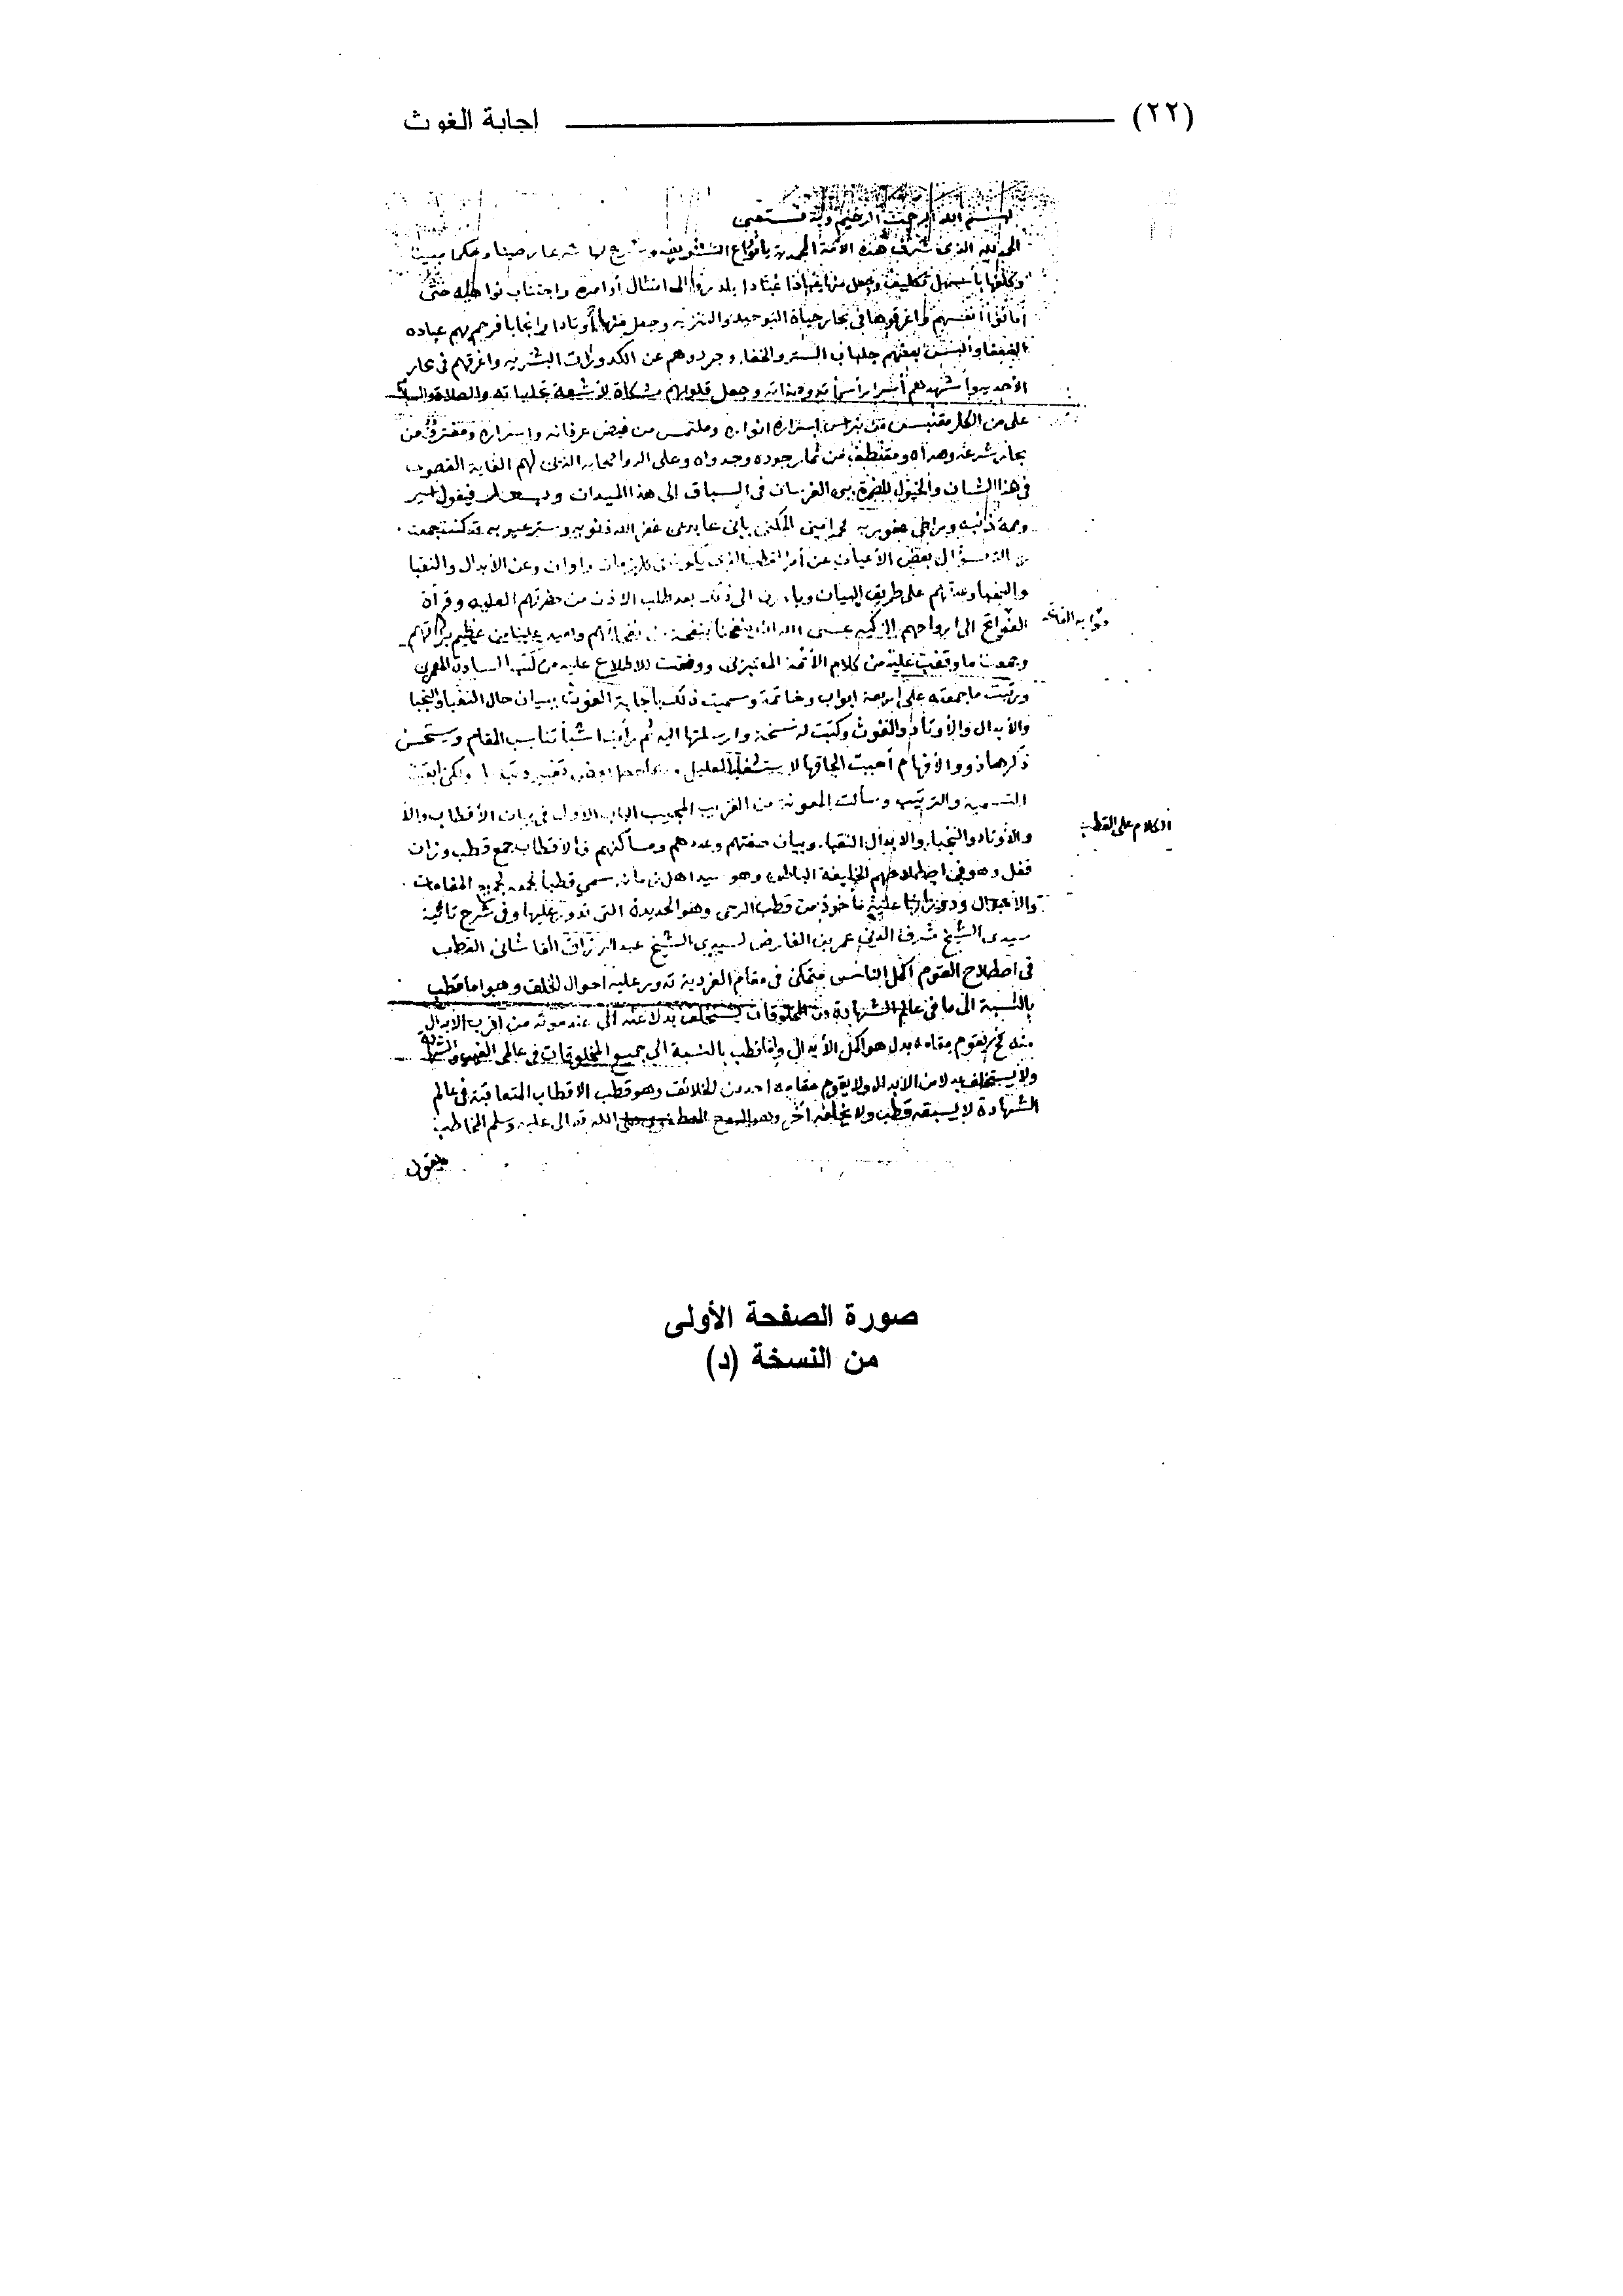 (٢٢) اجابة الغوث
بسم الله الرحمن الرحيم وبه نستعين
الحمد لله الذى شرف هذه الأمة المحمدية بأنواع التشريف وشرع لها
وكلفها بأسهل تكليف وجعل منها عبادا بادروا الى امتثال أوامره واجتناب نواهيه حتى
أماتوا أنفسهم واغرقوها فى بحار حياة التوحيد والتنزيه وجعل منها أوتادا وانجابا فرحم بهم عباده
الضعفا وألبس بعضهم جلباب الستر والخفا، وجردهم عن الكدورات البشرية واغرقهم فى بحار
الأحدية وأشهدهم أسرار أسمائه وصفاته وجعل قلوبهم مشكاة لأشعة تجلياته والصلاة والسلام
على من الكل مقتبس من نبراس انواره وملتمس من فيض عرفانه واسراره ومغترف من
بحار شرعته وهداه ومقتطف من ثمار جوده وجدواه وعلى اله وأصحابه الذين لهم الغاية القصوى
فى هذا الشان والخيول المضمرة بين الفرسان فى السباق الى هذا الميدان وبعد فيقول اسير
وصمة ذنبه وراجى عفو ربه محمد امين المكنى بابن عابدين غفر الله ذنوبه وستر عيوبه قد كنت جمعت
سؤال بعض الأعيان عن أمر القطب الذى يكون فى كل زمان واوان وعن الأبدال والنقبا
والنجبا وعدتهم على طريق البيان وبادرت الى ذلك بعد طلب الاذن من حضرتهم العلية وقرأة
الفواتح الى ارواحهم الزكية عسى الله ان ينفحنا بنفحة من نفحاتهم ويعيد علينا من عظيم بركاتهم
وجمعت ما وقفت عليه من كلام الأئمة المعتبرين ووفقت للاطلاع عليه من كتب السادة المعمرين
ورتبت ما جمعته على اربعة ابواب وخاتمة وسميت ذلك باجابة الغوث ببيان حال النقبا والنجبا
والأبدال والأوتاد والغوث وكتبت له نسخة وارسلتها اليه ثم رأيت اشيا تناسب المقام ويستحسن
ذكرها ذوو الأفهام أحببت الحاقها بعض تغيير ولكن ابقيت
التسمية والترتيب وسألت المعونة من القريب المجيب الباب الاول فى بيان الأقطاب
والأوتاد والنجباء والابدال النقباء وبيان صفتهم وعددهم ومساكنهم فالاقطاب جمع قطب وزان
قفل وهو فى اصطلاحهم الخليفة الباطن وهو سيد اهل زمانه سمى قطبا لجمعه لجميع المقامات
والأحوال ودورانها عليه مأخوذ من قطب الرحى وهو الحديدة التى تدور عليها وفى شرح تائية
سيدى الشيخ شرف الدين عمر بن الفارض لسيدى الشيخ عبد الرزاق القاشانى القطب
فى اصطلاح القوم اكمل انسان متمكن فى مقام الفردية تدور عليه احوال الخلق وهو اما قطب
بالنسبة الى ما فى عالم الشهادة من المخلوقات يستخلف بدلا عنه عند موته من اقرب الابدال
منه فحينئذ يقوم مقامه بدل هو اكمل الأبدال واما قطب بالنسبة الى جميع المخلوقات فى عالمى الغيب والشهادة
ولا يستخلف بدلا من الابدال ولا يقوم مقامه احد من الخلائق وهو قطب الاقطاب المتعاقبة فى عالم
الشهادة لا يسبقه قطب ولا يخلفه آخر وهو الروح المصطفوى صلى الله تعالى عليه وسلم المخاطب
بقول
الكلام على القطب
صورة الصفحة الأولى
من النسخة (د)